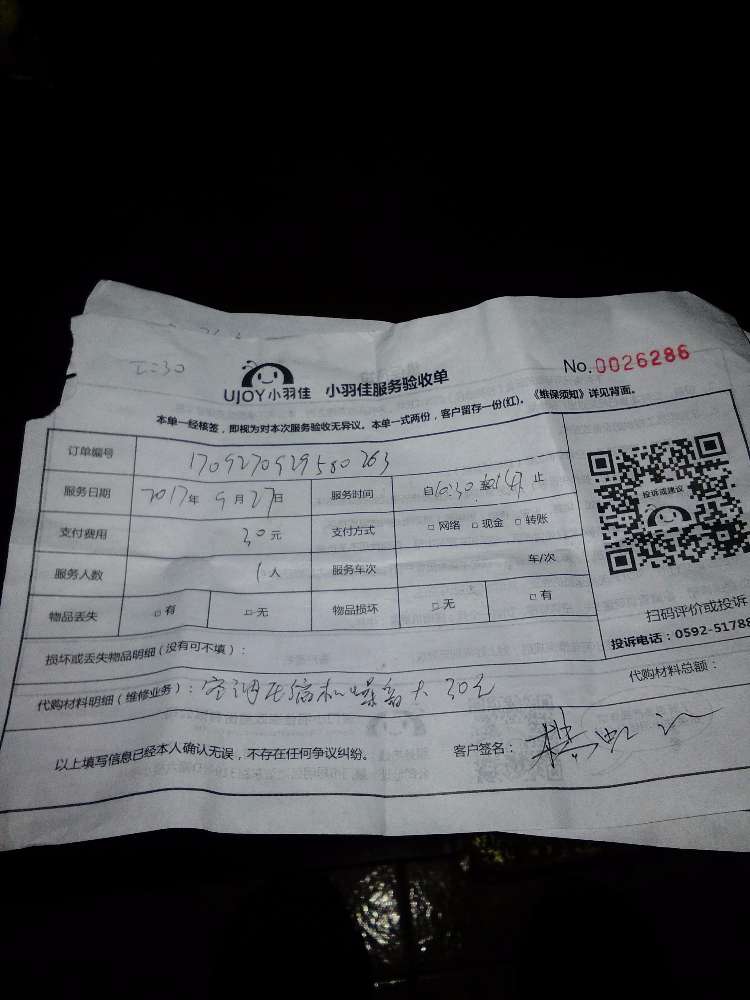 No.0026286
UJOY小羽佳 小羽佳服务验收单
本单一经核签，即视为对本次服务验收无异议。本单一式两份，客户留存一份(红)。《维保须知》详见背面。
订单编号 1709270929580263
服务日期 2017年9月27日 服务时间 自10:30至 止
支付费用 30元 支付方式 □网络 □现金 □转账
服务人数 1人 服务车次 车/次
物品丢失 □有 □无 物品损坏 □无 □有
投诉或建议
扫码评价或投诉
投诉电话：0592-51788
损坏或丢失物品明细(没有可不填)：
代购材料明细(维修业务)：空调压缩机噪音大 30元
代购材料总额：
以上填写信息已经本人确认无误，不存在任何争议纠纷。
客户签名：